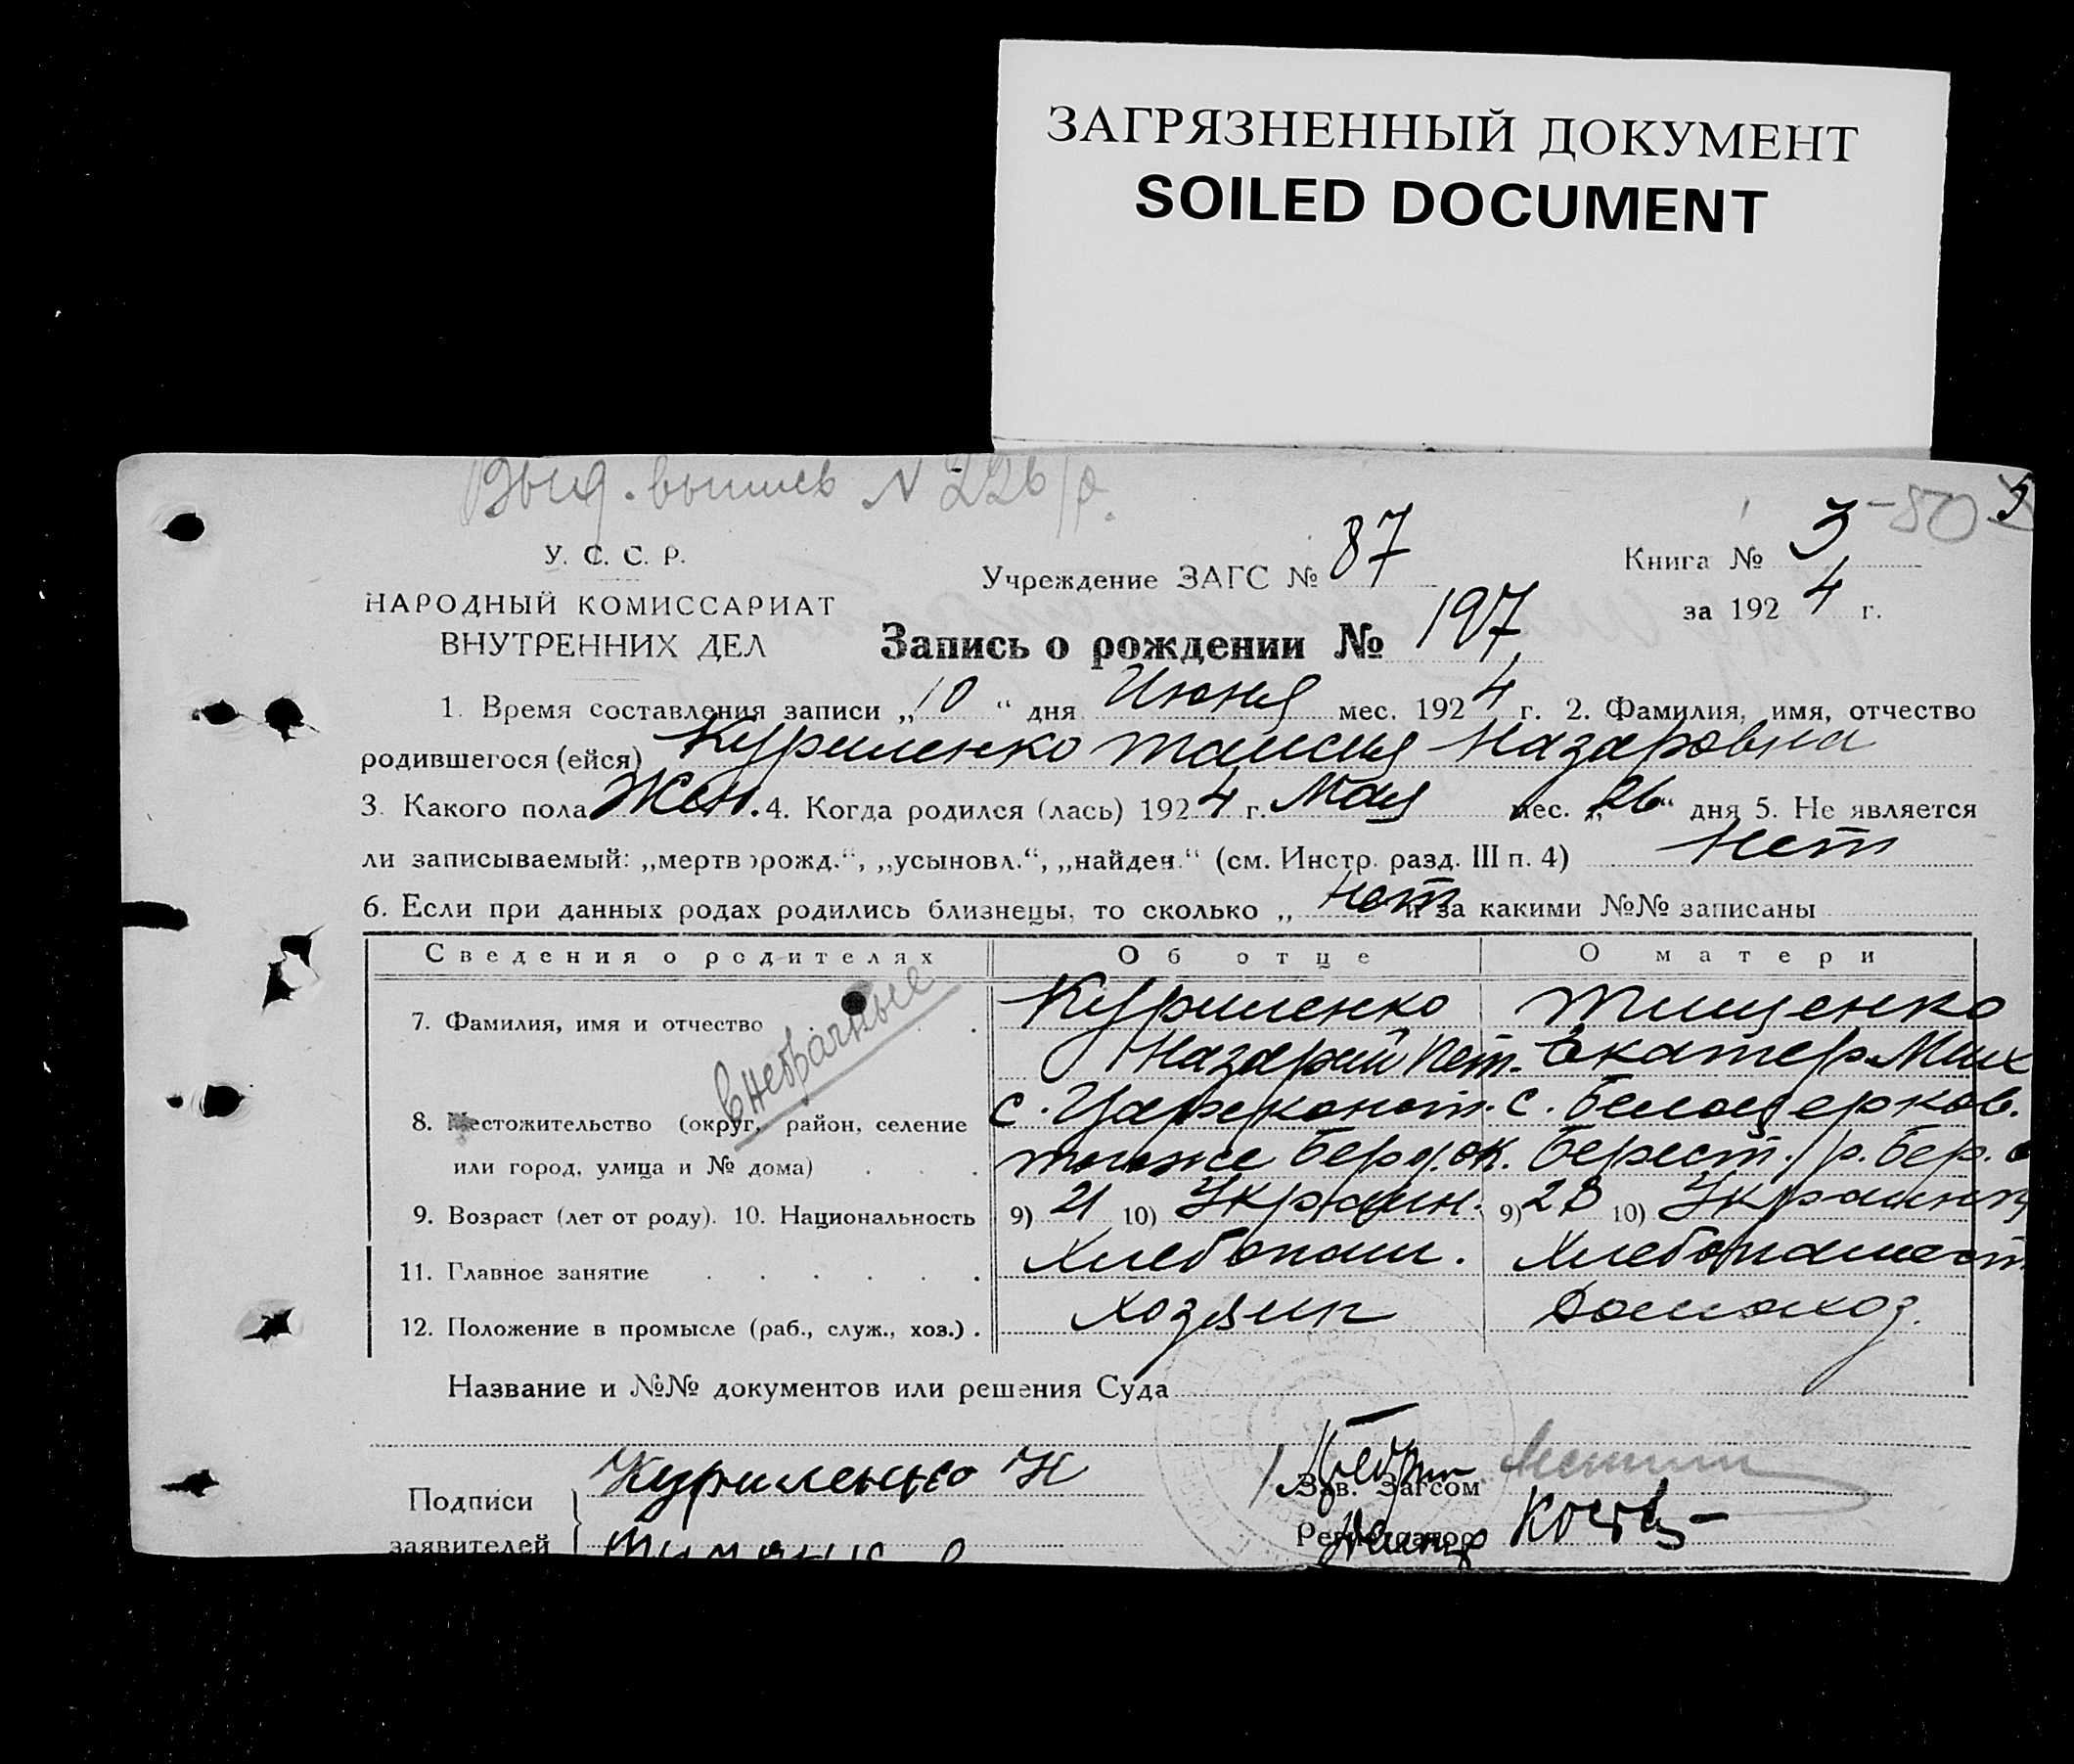 ЗАГРЯЗНЕННЫЙ ДОКУМЕНТ
SOILED DOCUMENT
Выд. выпись N 226/р.
У. С. С. Р.
НАРОДНЫЙ КОМИССАРИАТ
ВНУТРЕННИХ ДЕЛ
Учреждение ЗАГС № 87
Книга № 3
за 1924 г.
Запись о рождении № 197
1. Время составления записи „10“ дня Июня мес. 1924 г. 2. Фамилия, имя, отчество
родившегося (ейся) Куриленко Таисия Назаровна
3. Какого пола Жен. 4. Когда родился (лась) 1924 г. Мая мес. „26“ дня 5. Не является
ли записываемый: „мертворожд.“, „усыновл.“, „найден.“ (см. Инстр. разд. III п. 4) Нет
6. Если при данных родах родились близнецы, то сколько „ Нет и за какими №№ записаны
Сведения о родителях Об отце О матери
внебрачные
7. Фамилия, имя и отчество Куриленко Тищенко
Назарий Пет. Екатер. Мих
8. Местожительство (округ, район, селение с. Цареконст. с. Белоцерков.
или город, улица и № дома) тогоже Берд. ок. Берест. р. Бер. о
9. Возраст (лет от роду). 10. Национальность 9) 21 10) Украин. 9) 28 10) Украинк
11. Главное занятие Хлебопаш. Хлебопашест
12. Положение в промысле (раб., служ., хоз.) . Хозяин Домохоз.
Название и №№ документов или решения Суда
Подписи
заявителей
Куриленко Н
Зав. Загсом
Регистратор